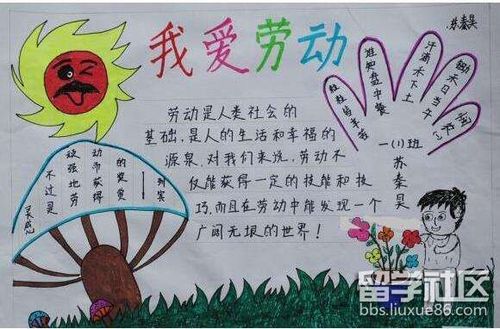 我爱劳动
苏秦昊
锄禾日当午
汗滴禾下土
谁知盘中餐
粒粒皆辛苦
一(1)班
苏秦昊
劳动是人类社会的
基础,是人的生活和幸福的
源泉,对我们来说,劳动不
仅能获得一定的技能和技
巧,而且在劳动中能发现一个
广阔无垠的世界!
灵感
不过是
顽强地劳
动而获得
的奖赏
——列宾
留学社区
bbs.liuxue86.com